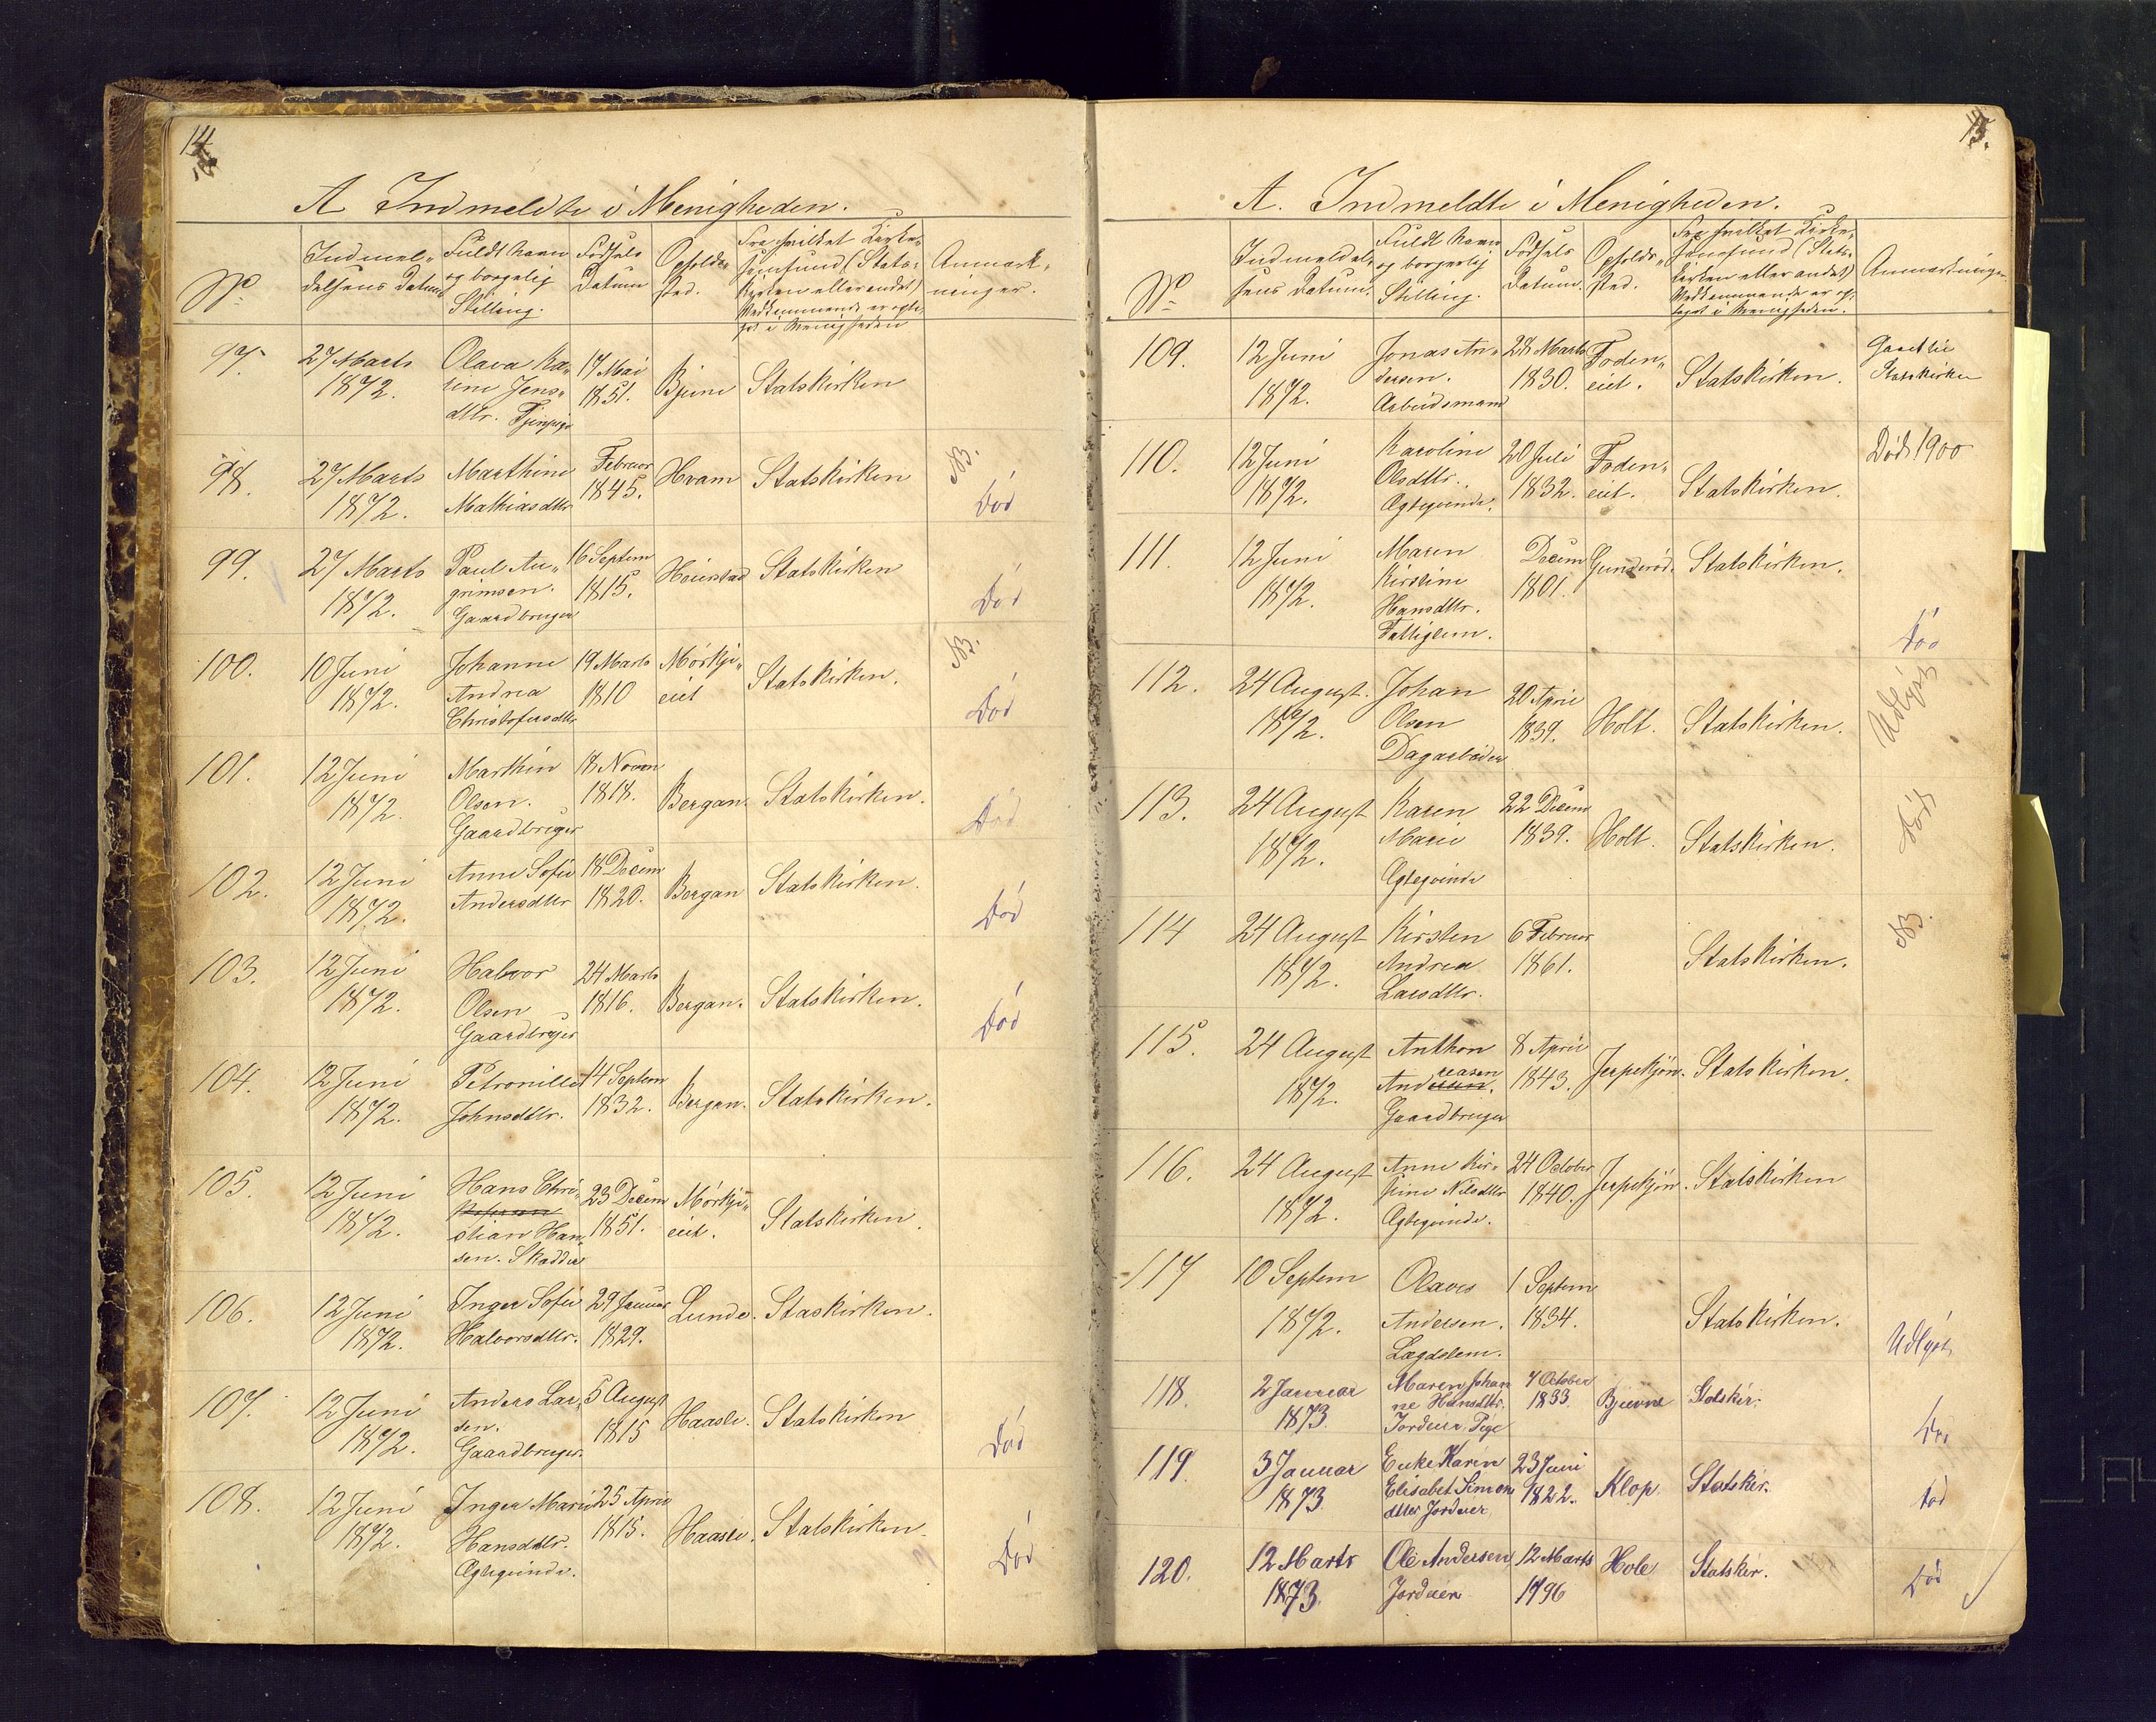 14.
A Indmeldte i Menigheden.
No
Indmel-
delsens Datum
Fuldt Navn
og borgelig
Stilling.
Fødsels
Datum
Opholds-
sted.
Fra hvilket Kirke-
samfund (Stats-
kirken eller andet)
Vedkommende er opta-
get i Menigheden
Anmærk-
ninger.
97. 27 Marts 1872. Olava Ka- rine Jens- dttr. Tjenpige 17 Mai 1851. Bjune Statskirken
98. 27 Marts 1872. Marthine Mathiasdttr Februar 1845. Hvam Statskirken NB. Død
99. 27 Marts 1872. Paul An- grimsen. Gaardbruger 16 Septem 1815. Heierstad Statskirken Død
100. 10 Juni 1872. Johanne Andrea Christofersdttr 19 Marts 1810 Mørkje- eiet Statskirken. NB. Død
101. 12 Juni 1872. Marthin Olsen. Gaardbruger 18 Novem 1818. Bergan. Statskirken. Død
102. 12 Juni 1872. Anne Sofie Andersdttr 18 Decem 1820. Bergan Statskirken. Død
103. 12 Juni 1872. Halvor Olsen Gaardbruger 24 Marts 1816. Bergan. Statskirken. Død
104. 12 Juni 1872. Petronille Johnsdttr. 14 Septem 1832. Bergan. Statskirken.
105. 12 Juni 1872. Hans Chri- stian Han- sen. Skrædder 23 Decem 1851. Mørkje- eiet. Statskirken.
106. 12 Juni 1872. Inger Sofie Halvorsdttr. 29 Januar 1829. Lunde. Staskirken.
107. 12 Juni 1872. Anders Lar- sen. Gaardbruger. 5 August 1815 Haasle. Statskirken Død
108. 12 Juni 1872. Inger Marie Hansdttr. Ægteqvinde. 25 April 1815. Haasle. Statskirken. Død
15.
A. Indmeldte i Menigheden.
No
Indmeldel-
sens Datum.
Fuldt Navn
og borgerlig
Stilling.
Fødsels
Datum.
Opholds-
sted.
Fra hvilket Kirke-
samfund (Stats-
kirken eller andet)
Vedkommende er op-
taget i Menigheden.
Anmærkninger
109. 12 Juni 1872. Jonas An- dersen. Arbeidsmand 28 Marts 1830. Foden- eiet. Statskirken. Gaaet til Statskirken
110. 12 Juni 1872. Karoline Olsdttr. Ægteqvinde. 20 Juli 1832. Foden- eiet. Statskirken. Død 1900
111. 12 Juni 1872. Maren Kirstine Hansdttr. Fattiglem. Decem 1801. Gunderød. Statskirken. Død
112. 24 August. 1872. Johan Olsen Dagarbeider 20 April 1839. Holt. Statskirken. Udløst
113. 24 August 1872. Karen Marie Ægteqvinde 22 Decem 1839. Holt. Statskirken. Død
114 24 August 1872. Kirsten Andrea Larsdttr. 6 Februar 1861. Statskirken. NB.
115. 24 August 1872. Anthon Andreasen Gaardbruger 8 April 1843. Jerpekjøn. Statskirken.
116. 24 August 1872. Anne Kir- stine Nilsdttr Ægteqvinde. 24 October 1840. Jerpekjøn. Statskirken
117 10 Septem 1872. Olaves Andersen. Lægdslem. 1 Septem 1834. Statskirken. Udløst
118. 2 Januar 1873. Maren Johan ne Hansdttr. Jordeier Pige 7 October 1833. Bjuerne Statskir. Død
119. 3 Januar 1873 Enke Karen Elisabet Simons dtter Jordeier 23 Juni 1822. Klop. Statskir. død
120. 12 Marts 1873. Ole Andersen Jordeier 12 Marts 1796 Hole Statskir. Død